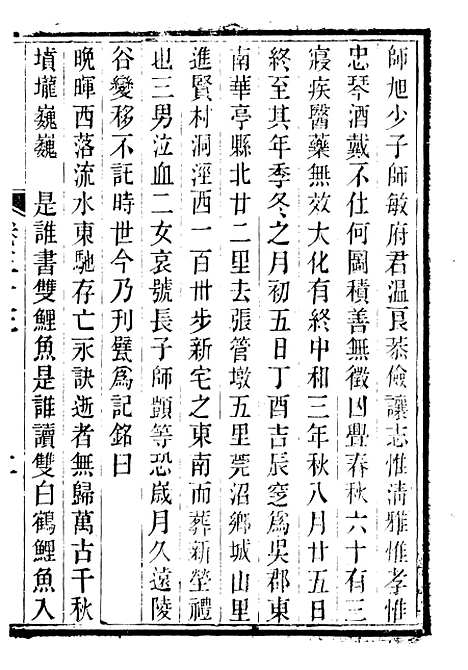 師旭少子師敏府君温良恭儉讓志惟淸雅惟孝惟
忠琴酒戴不仕何圖積善無徵凶舋春秋六十有三
寢疾醫藥無效大化有終中和三年秋八月廿五日
終至其年季冬之月初五日丁酉吉辰窆爲吳郡東
南華亭縣北廿二里去張管墩五里莞沼鄉城山里
進賢村洞涇西一百卅步新宅之東南而葬新塋禮
也三男泣血二女哀號長子師顗等恐歲月久遠陵
谷變移不託時世今乃刊甓爲記銘曰
晚暉西落流水東馳存亡永訣逝者無歸萬古千秋
墳壠巍巍　是誰書雙鯉魚是誰讀雙白鶴鯉魚入